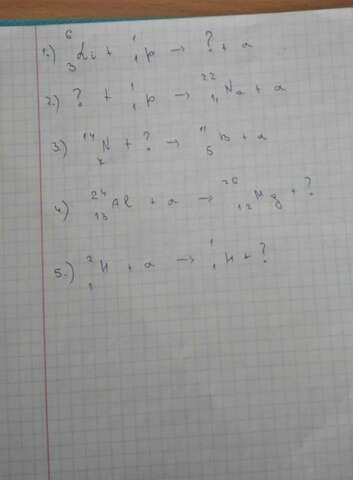 1.) ⁶₃Li + ¹₁p → ? + a
2.) ? + ¹₁p → ²²₁₁Na + a
3) ¹⁴₇N + ? → ¹¹₅B + a
4) ²⁴₁₃Al + a → ²⁶₁₂Mg + ?
5.) ²₁H + a → ¹₁H + ?